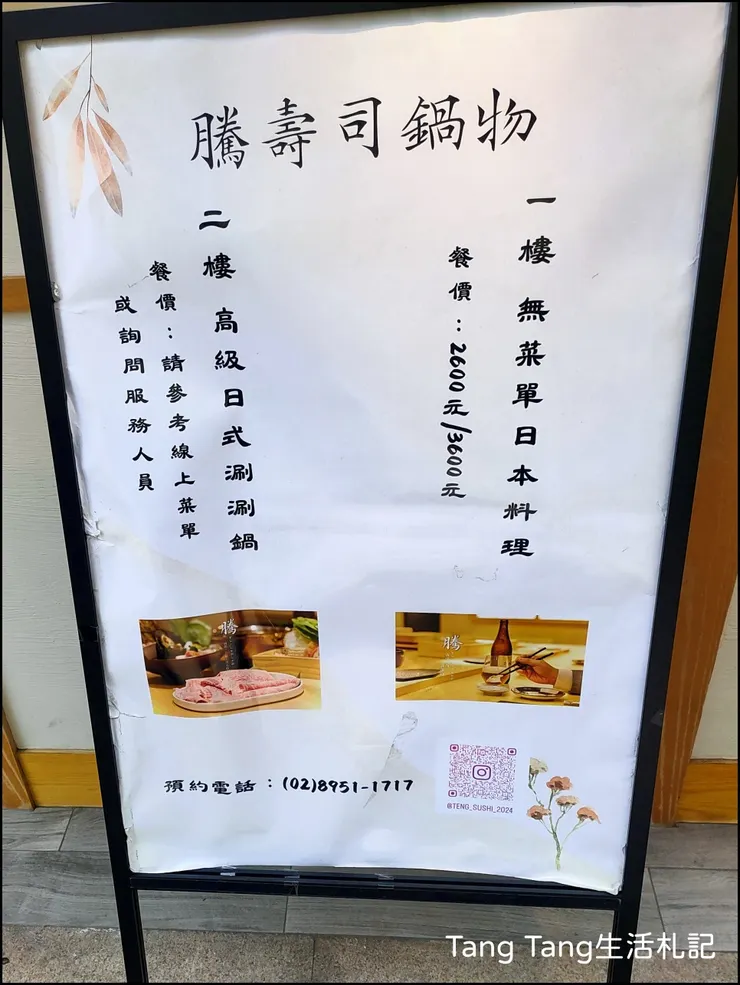 騰壽司鍋物
一樓 無菜單日本料理
餐價：2600元/3600元
二樓 高級日式涮涮鍋
餐價：請參考線上菜單
或詢問服務人員
騰
騰
預約電話：(02)8951-1717
@TENG_SUSHI_2024
Tang Tang生活札記